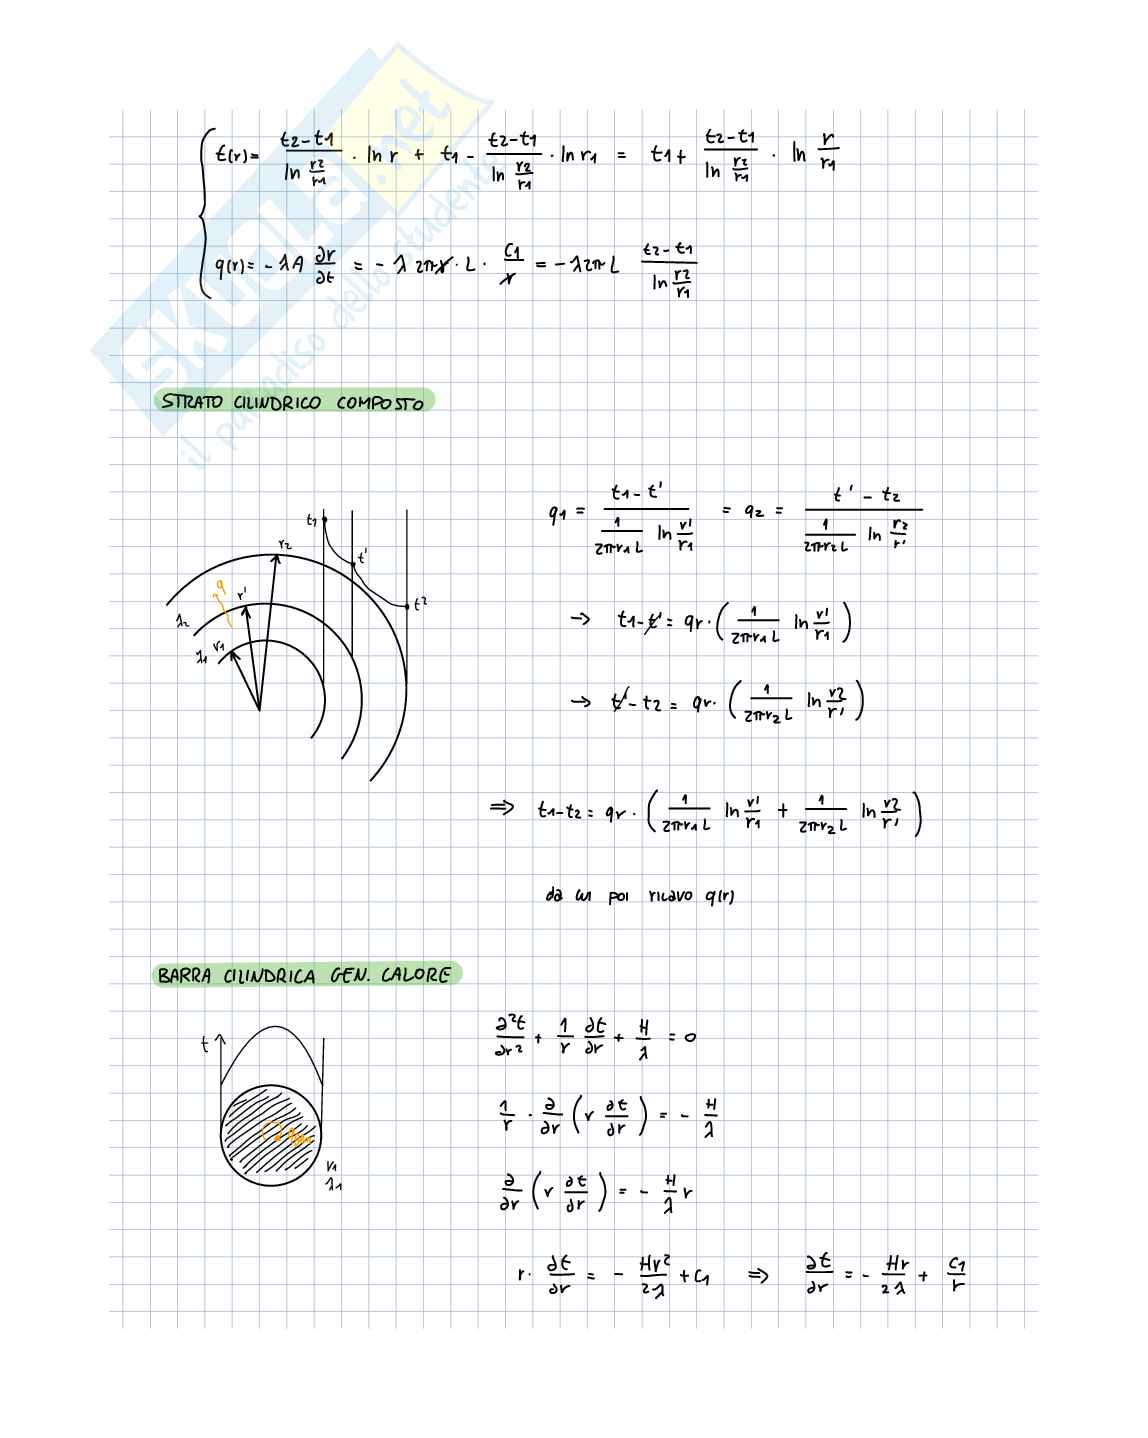 t(r) = (t2-t1)/(ln r2/r1) · ln r + t1 - (t2-t1)/(ln r2/r1) · ln r1 = t1 + (t2-t1)/(ln r2/r1) · ln r/r1
q(r) = - λA ∂r/∂t = - λ 2πr · L · C1/r = - λ2π L (t2-t1)/(ln r2/r1)
SKUOLA.net
il paradiso dello studente
STRATO CILINDRICO COMPOSTO
q1 = (t1 - t')/(1/(2πr1 L) ln r'/r1) = q2 = (t' - t2)/(1/(2πr2 L) ln r2/r')
t1
r2
t'
q
r'
t2
λ2
r1
λ1
→ t1 - t' = qr · (1/(2πr1 L) ln r'/r1)
→ t' - t2 = qr · (1/(2πr2 L) ln r2/r')
⇒ t1-t2 = qr · (1/(2πr1 L) ln r'/r1 + 1/(2πr2 L) ln r2/r')
da cui poi ricavo q(r)
BARRA CILINDRICA GEN. CALORE
t
r1
λ1
∂²t/∂r² + 1/r ∂t/∂r + H/λ = 0
1/r · ∂/∂r (r ∂t/∂r) = - H/λ
∂/∂r (r ∂t/∂r) = - H/λ r
r · ∂t/∂r = - Hr²/2λ + C1 ⇒ ∂t/∂r = - Hr/2λ + C1/r